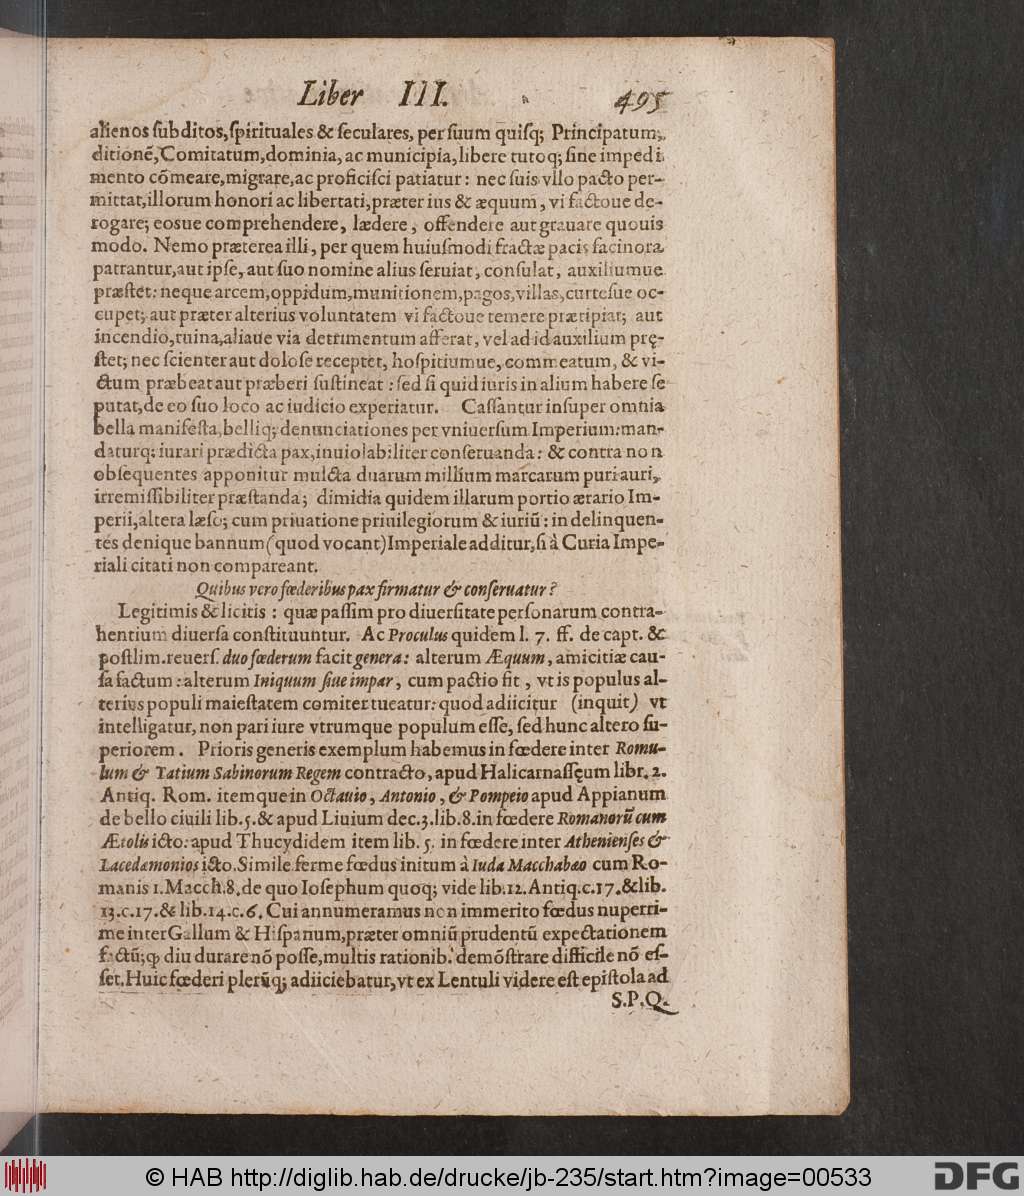 Liber III. 495
alienos ſubditos,ſpirituales & ſeculares, per ſuum quiſq; Principatum,
ditionē,Comitatum,dominia, ac municipia,libere tutoq; ſine impedi
mento cōmeare,migrare,ac proficiſci patiatur: nec ſuis vllo pacto per-
mittat,illorum honori ac libertati,præter ius & æquum, vi factoue de-
rogare; eosue comprehendere, lædere, offendere aut grauare quouis
modo. Nemo præterea illi, per quem huiuſmodi fractæ pacis facinora
patrantur,aut ipſe, aut ſuo nomine alius ſeruiat, conſulat, auxiliumue
præſtet: neque arcem,oppidum,munitionem,pagos,villas,curteſue oc-
cupet; aut præter alterius voluntatem vi factoue temere præripiat; aut
incendio,ruina,aliaue via detrimentum afferat, vel ad id auxilium prę-
ſtet; nec ſcienter aut doloſe receptet, hoſpitiumue, commeatum, & vi-
ctum præbeat aut præberi ſuſtineat : ſed ſi quid iuris in alium habere ſe
putat,de eo ſuo loco ac iudicio experiatur. Caſſantur inſuper omnia
bella manifeſta,belliq; denunciationes per vniuerſum Imperium: man-
daturq; iurari prædicta pax,inuiolabiliter conſeruanda: & contra non
obſequentes apponitur mulcta duarum millium marcarum puri auri,
irremiſſibiliter præſtanda; dimidia quidem illarum portio ærario Im-
perii,altera læſo; cum priuatione priuilegiorum & iuriū: in delinquen-
tes denique bannum (quod vocant) Imperiale additur,ſi à Curia Impe-
riali citati non compareant.
Quibus vero fœderibus pax firmatur & conſeruatur?
Legitimis & licitis : quæ paſſim pro diuerſitate perſonarum contra-
hentium diuerſa conſtituuntur. Ac Proculus quidem l. 7. ff. de capt. &
poſtlim.reuerſ. duo fœderum facit genera: alterum Æquum, amicitiæ cau-
ſa factum : alterum Iniquum ſiue impar, cum pactio fit, vt is populus al-
terius populi maieſtatem comiter tueatur: quod adiicitur (inquit) vt
intelligatur, non pari iure vtrumque populum eſſe, ſed hunc altero ſu-
periorem. Prioris generis exemplum habemus in fœdere inter Romu-
lum & Tatium Sabinorum Regem contracto, apud Halicarnaſſęum libr. 2.
Antiq. Rom. itemque in Octauio, Antonio, & Pompeio apud Appianum
de bello ciuili lib.5.& apud Liuium dec.3.lib.8.in fœdere Romanorū cum
Ætolis icto: apud Thucydidem item lib. 5. in fœdere inter Athenienſes &
Lacedæmonios icto. Simile ferme fœdus initum à Iuda Macchabæo cum Ro-
manis 1.Macch.8,de quo Ioſephum quoq; vide lib.12.Antiq.c.17.& lib.
13.c.17.& lib.14.c.6. Cui annumeramus non immerito fœdus nuperri-
me inter Gallum & Hiſpanum,præter omniū prudentū expectationem
factū;ꝙ diu durare nō poſſe,multis rationib. demōſtrare difficile nō eſ-
ſet. Huic fœderi plerūq; adiiciebatur,vt ex Lentuli videre eſt epiſtola ad
S.P.Q.
© HAB http://diglib.hab.de/drucke/jb-235/start.htm?image=00533
DFG